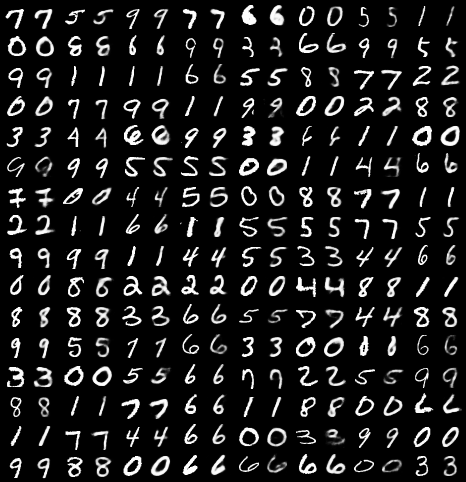 7 7 5 5 9 9 7 7 6 6 0 0 5 5 1 1
0 0 8 8 6 6 9 9 3 3 6 6 9 9 5 5
9 9 1 1 1 1 6 6 5 5 8 8 7 7 2 2
0 0 7 7 9 9 1 1 9 9 0 0 2 2 8 8
3 3 4 4 6 6 9 9 3 3 1 1 0 0
9 9 9 9 5 5 5 5 0 0 1 1 4 4 6 6
7 7 0 0 4 4 5 5 0 0 8 8 7 7 1 1
2 2 1 1 6 6 1 1 5 5 5 5 7 7 5 5
9 9 9 9 1 1 4 4 5 5 3 3 4 4 6 6
0 0 8 8 2 2 2 2 0 0 4 4 8 8 1 1
8 8 8 8 3 3 6 6 5 5 7 7 4 4 8 8
9 9 5 5 1 1 6 6 3 3 0 0 6 6
3 3 0 0 5 5 6 6 7 7 2 2 5 5 9 9
8 8 1 1 7 7 6 6 1 1 8 8 0 0 6 6
1 1 7 7 4 4 6 6 0 0 3 3 9 9 0 0
9 9 8 8 0 0 6 6 6 6 6 6 0 0 3 3